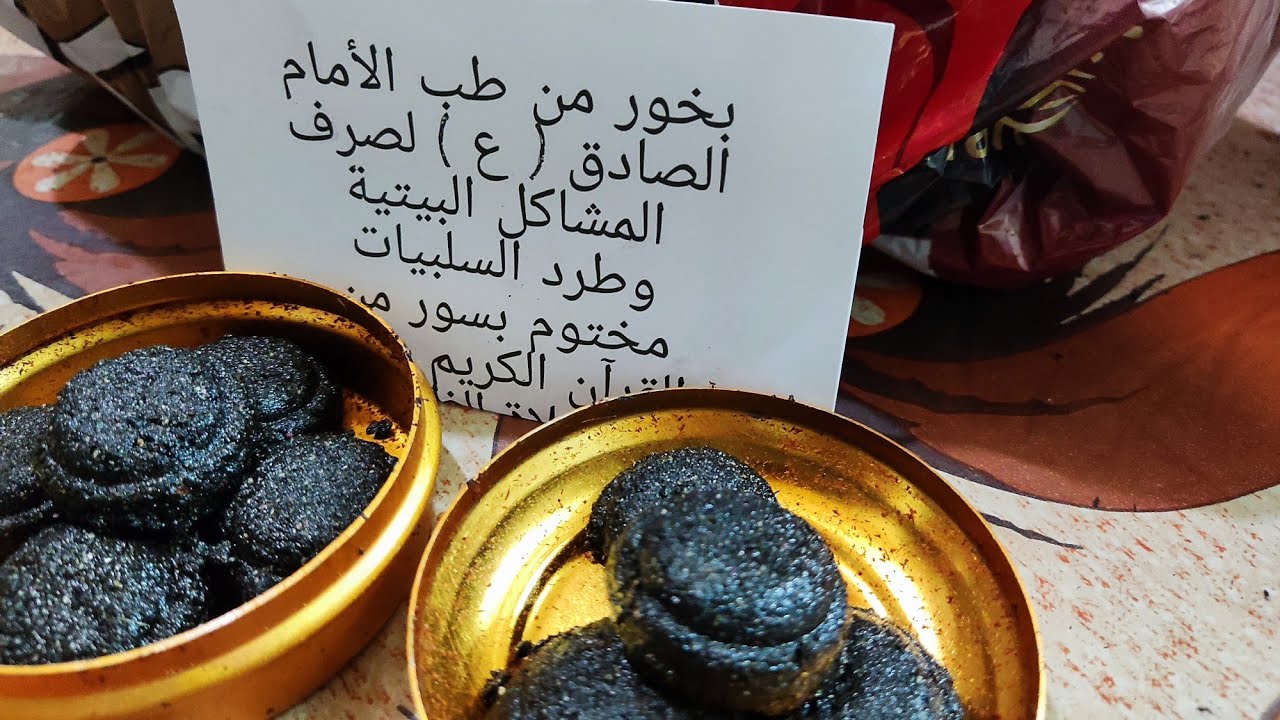 بخور من طب الأمام
الصادق ( ع ) لصرف
المشاكل البيتية
وطرد السلبيات
مختوم بسور من
القرآن الكريم